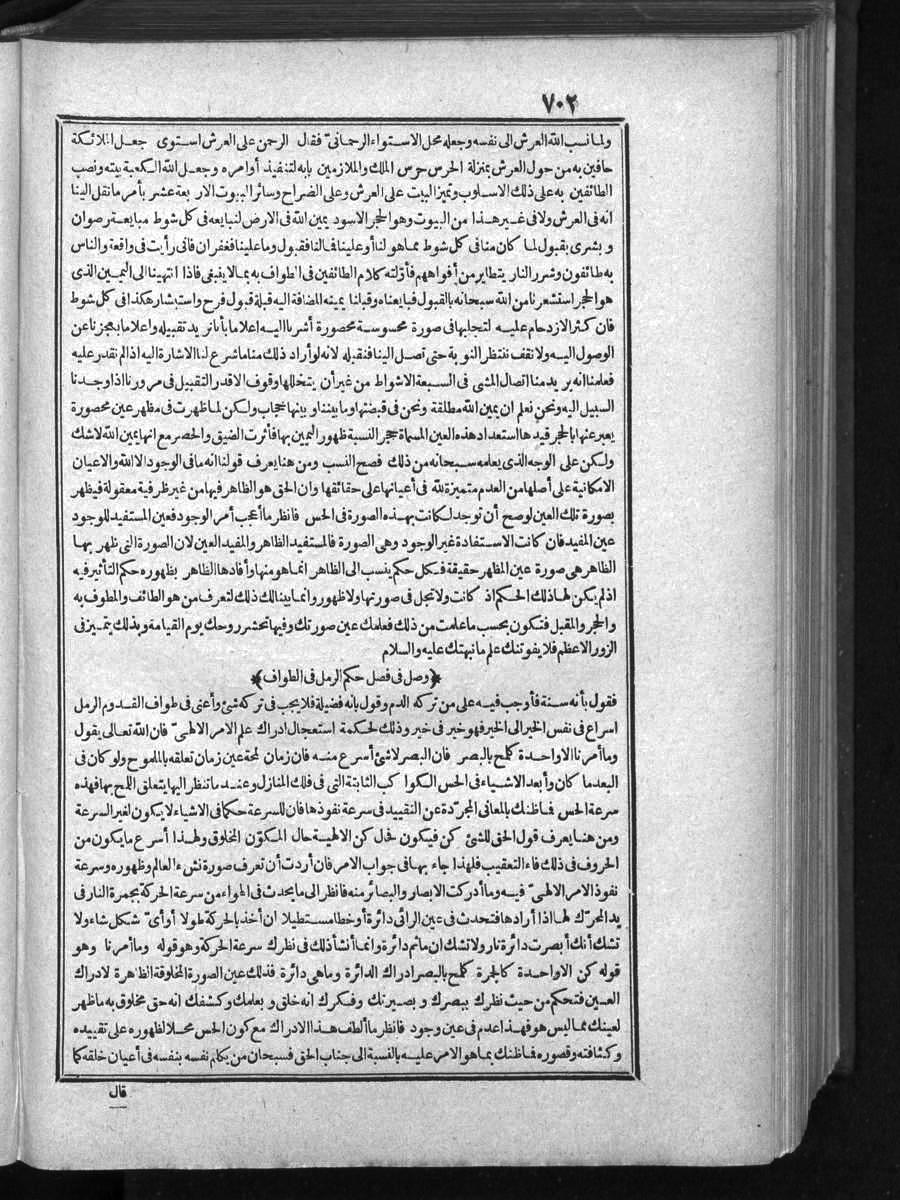 ٧٠٢
ولما نسب الله العرش الى نفسه وجعله محل الاستواء الرحمانىّ فقال الرحمن على العرش استوى جعل الملائكة
حافين به من حول العرش بمنزلة الحرس حرس الملك والملازمين بابه لتنفيذ أوامره وجعل الله الكعبة بيته ونصب
الطائفين به على ذلك الاسلوب وتميز البيت على العرش وعلى الضراح وسائر البيوت الاربعة عشر بأمر ما نقل الينا
انه فى العرش ولا فى غير هذا من البيوت وهو الحجر الاسود يمين الله فى الارض لنبايعه فى كل شوط مبايعة رضوان
وبشرى بقبول لما كان منا فى كل شوط مما هو لنا أو علينا فما لنا فقبول وما علينا فغفران فانى رأيت فى واقعة والناس
به طائفون وشرر النار يتطاير من أفواههم فأوّلته كلام الطائفين فى الطواف به بما لا ينبغى فاذا انتهينا الى اليمين الذى
هو الحجر استشعرنا من الله سبحانه بالقبول فبايعناه وقبلنا يمينه المضافة اليه قبلة قبول فرح واستبشار هكذا فى كل شوط
فان كثر الازدحام عليه لتجليها فى صورة محسوسة محصورة أشرنا اليه إعلاما بأنا نريد تقبيله واعلاما بعجزنا عن
الوصول اليه ولا نقف ننتظر النوبة حتى تصل الينا فنقبله لانه لو أراد ذلك منا ما شرع لنا الاشارة اليه اذا لم نقدر عليه
فعلمنا انه يريد منا اتصال المشى فى السبعة الاشواط من غير أن يتخللها وقوف الا قدر التقبيل فى مرورنا اذا وجدنا
السبيل اليه ونحن نعلم ان يمين الله مطلقة ونحن فى قبضتها وما بيننا وبينها حجاب ولكن لما ظهرت فى مظهر عين محصورة
يعبر عنها بالحجر قيدها استعداد هذه العين المسماة حجر النسبة ظهور اليمين بها فأثرت الضيق والحصر مع انها يمين الله لا شك
ولكن على الوجه الذى يعلمه سبحانه من ذلك فصح النسب ومن هنا يعرف قولنا انه ما فى الوجود الا الله والاعيان
الامكانية على أصلها من العدم متميزة لله فى أعيانها على حقائقها وان الحق هو الظاهر فيها من غير ظرفية معقولة فيظهر
بصورة تلك العين لو صح أن توجد لكانت بهذه الصورة فى الحس فانظر ما أعجب أمر الوجود فعين المستفيد للوجود
عين المفيد فان كانت الاستفادة غير الوجود وهى الصورة فالمستفيد الظاهر والمفيد العين لان الصورة التى ظهر بها
الظاهر هى صورة عين المظهر حقيقة فكل حكم ينسب الى الظاهر انما هو منها وأفادها الظاهر بظهوره حكم التأثير فيه
اذ لم يكن لها ذلك الحكم اذ كانت ولا تجل فى صورتها ولا ظهور وانما بينا لك ذلك لتعرف من هو الطائف والمطوف به
والحجر والمقبل فتكون بحسب ما علمت من ذلك فعلمك عين صورتك وفيها تحشر روحك يوم القيامة وبذلك يتميز فى
الزور الاعظم فلا يفوتنك علم ما نبهتك عليه والسلام
﴿وصل فى فصل حكم الرمل فى الطواف﴾
فقول بأنه سنة فأوجب فيه على من تركه الدم وقول بانه فضيلة فلا يجب فى تركه شئ وأعنى فى طواف القدوم الرمل
اسراع فى نفس الخير الى الخير فهو خير فى خير وذلك لحكمة استعجال ادراك علم الامر الالهىّ فان الله تعالى يقول
وما أمرنا الا واحدة كلمح بالبصر فان البصر لا شئ أسرع منه فان زمان لمحة عين زمان تعلقه بالملموح ولو كان فى
البعد ما كان وأبعد الاشياء فى الحس الكواكب الثابتة التى فى فلك المنازل وعند ما تنظر اليها يتعلق اللمح بها فهذه
سرعة الحس فما ظنك بالمعانى المجرّدة عن التقييد فى سرعة نفوذها فان للسرعة حكما فى الاشياء لا يكون لغير السرعة
ومن هنا يعرف قول الحق للشئ كن فيكون فحال كن الالهية حال المكوّن المخلوق ولهذا أسرع ما يكون من
الحروف فى ذلك فاء التعقيب فلهذا جاء بها فى جواب الامر فان أردت أن تعرف صورة نشء العالم وظهوره وسرعة
نفوذ الامر الالهىّ فيه وما أدركت الابصار والبصائر منه فانظر الى ما يحدث فى الهواء من سرعة الحركة بجمرة النار فى
يد المحرّك لها اذا أرادها فتحدث فى عين الرائى دائرة أو خطا مستطيلا ان أخذ بالحركة طولا أو أىّ شكل شاء ولا
تشك أنك أبصرت دائرة نار ولا تشك ان ما ثم دائرة وانما أنشأ ذلك فى نظرك سرعة الحركة وهو قوله وما أمرنا وهو
قوله كن الا واحدة كالجمرة كلمح بالبصر ادراك الدائرة وما هى دائرة فذلك عين الصورة المخلوقة الظاهرة لادراك
العين فتحكم من حيث نظرك ببصرك وبصيرتك وفكرك انه خلق وبعلمك وكشفك انه حق مخلوق به ما ظهر
لعينك مما ليس هو فهذا عدم فى عين وجود فانظر ما ألطف هذا الادراك مع كون الحس محلا لظهوره على تقييده
وكثافته وقصوره فما ظنك بما هو الامر عليه بالنسبة الى جناب الحق فسبحان من يكلم نفسه بنفسه فى أعيان خلقه كما
قال